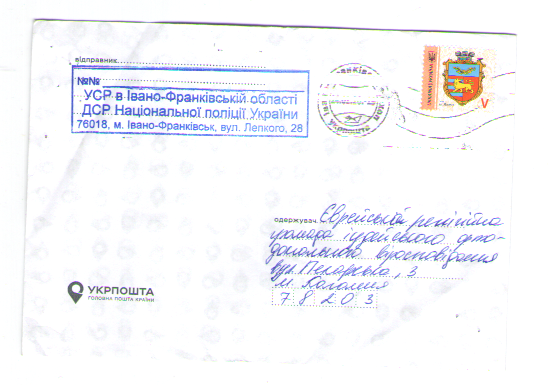 відправник
№№
УСР в Івано-Франківській області
ДСР Національної поліції України
76018, м. Івано-Франківськ, вул. Лепкого, 28
V
одержувач Єврейській релігійна
громада іудейського орто-
доксального віросповідання
вул. 3
м. Коломия
78203
УКРПОШТА
ГОЛОВНА ПОШТА КРАЇНИ